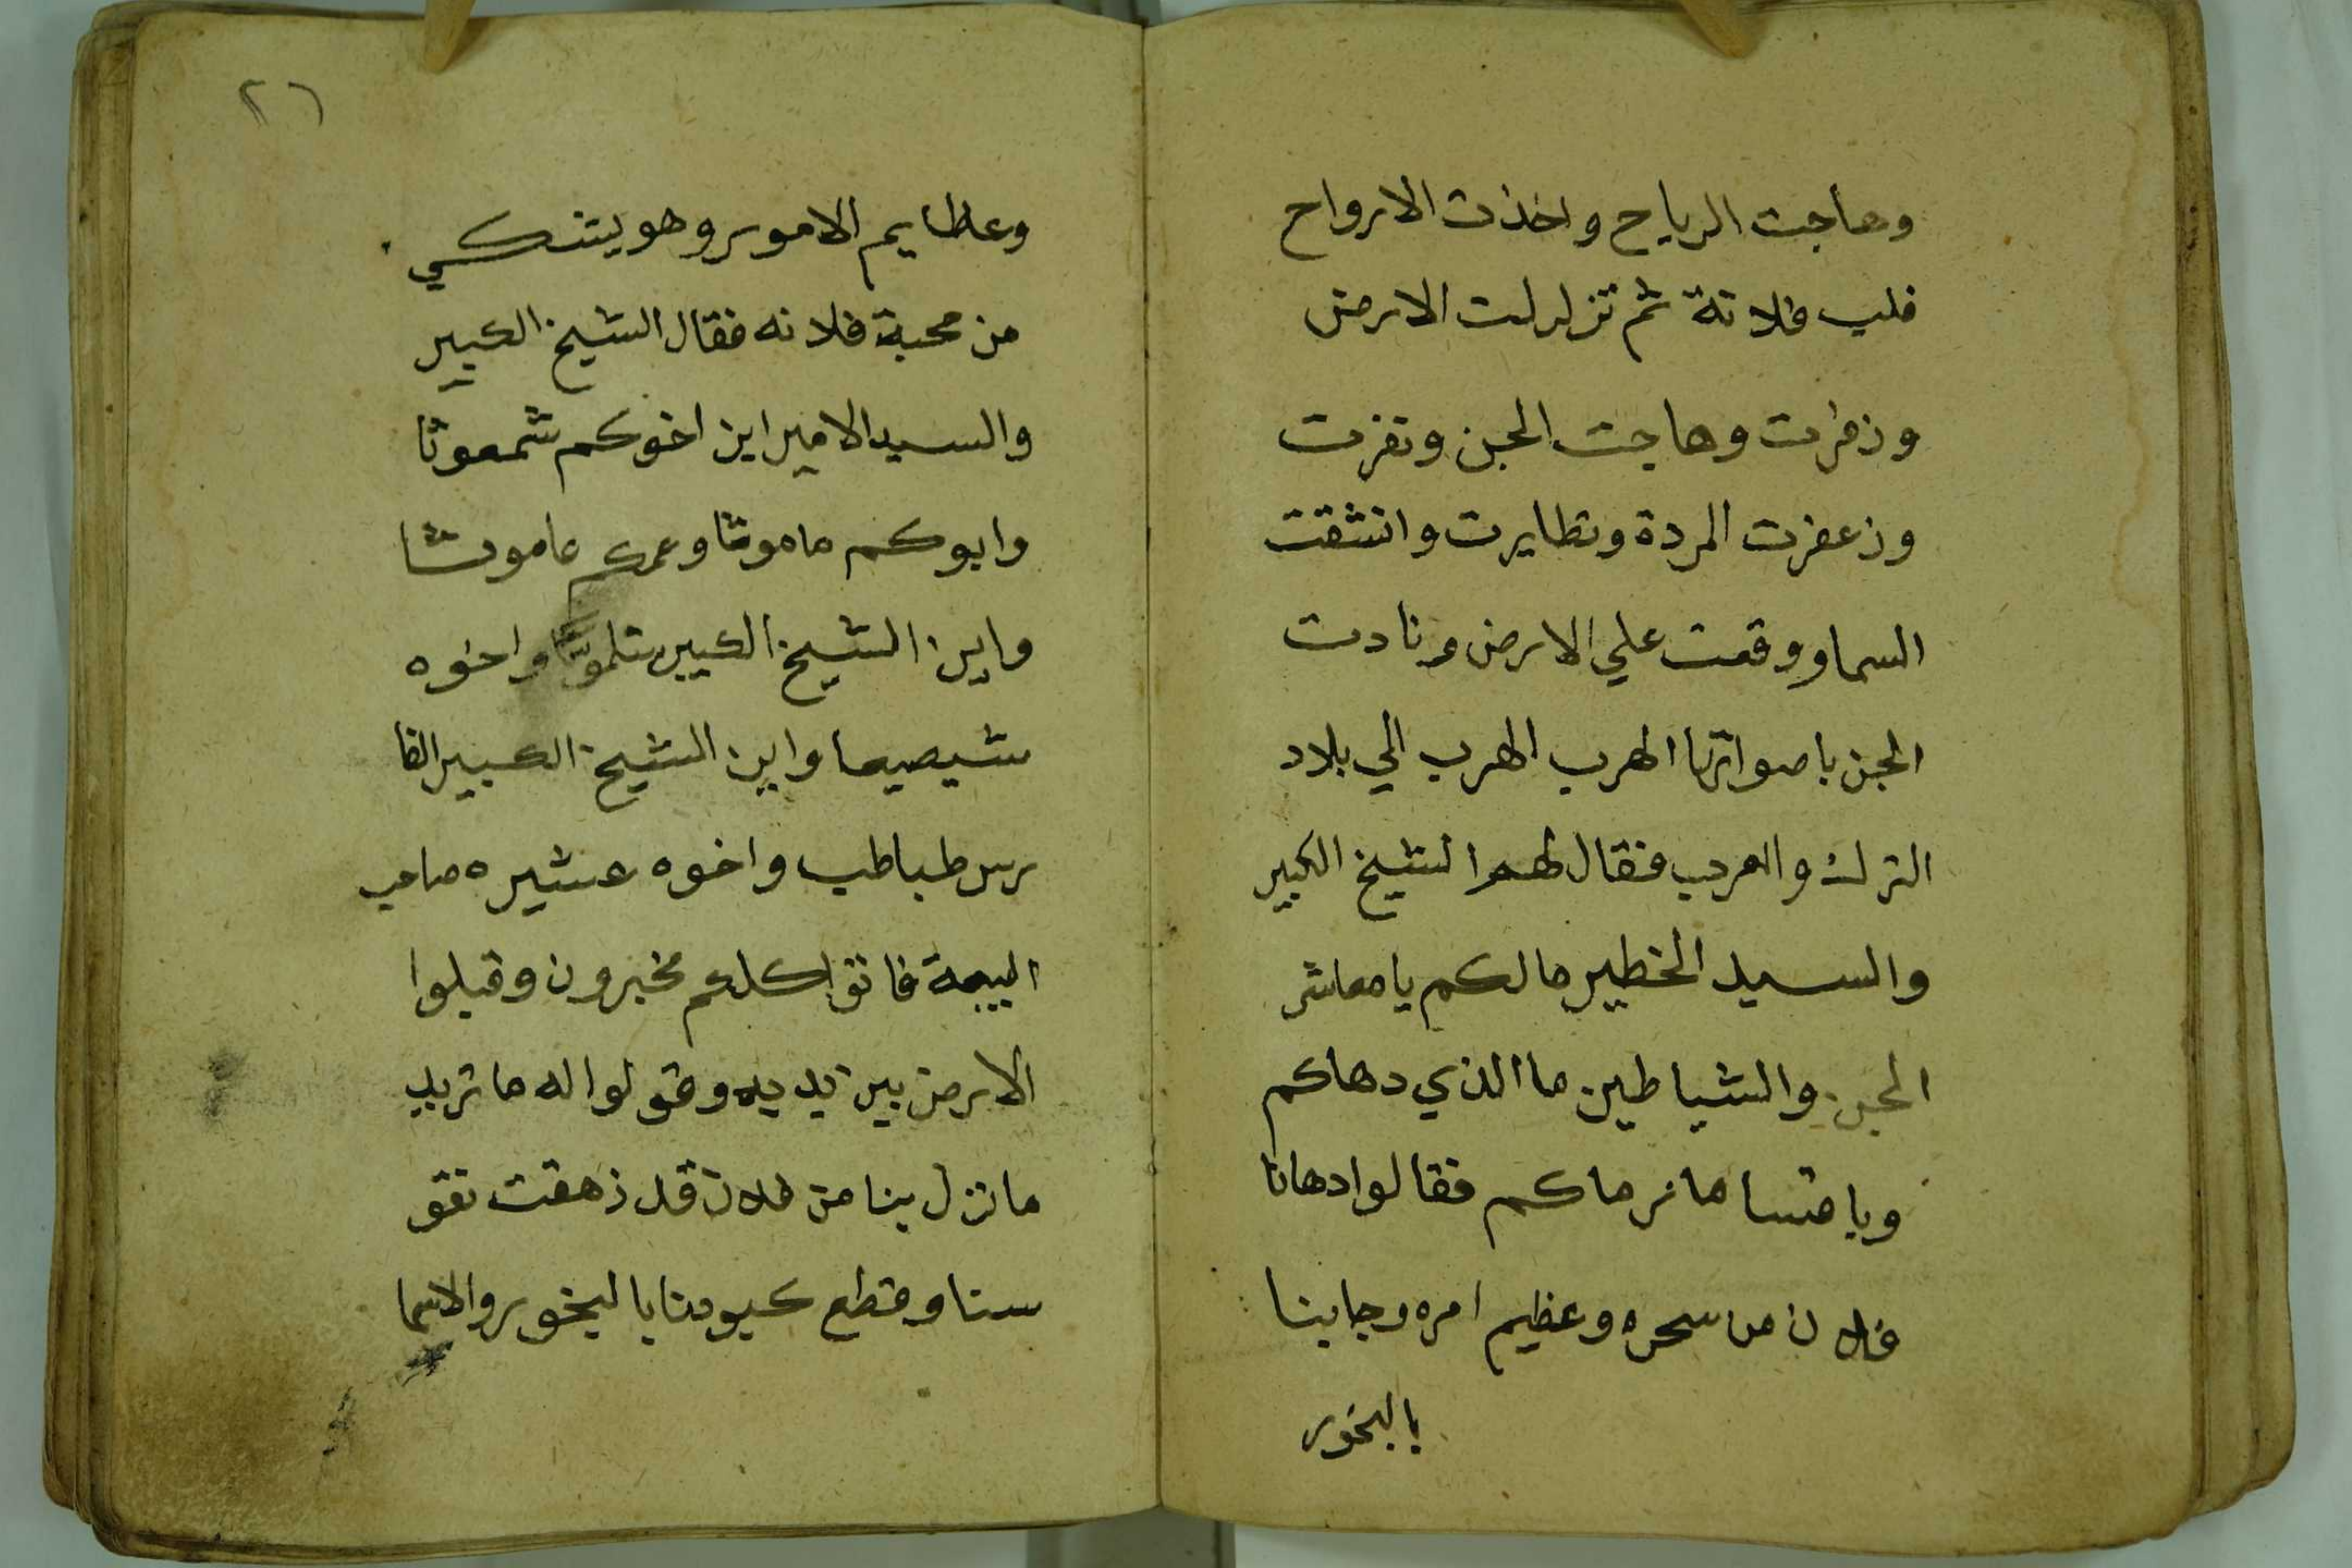 وهاجت الرياح واخذت الارواح
قلب فلانة ثم تزلزلت الارض
وزفرت وهاجت الجن ونفرت
وزعفرت المردة وتطايرت وانشقت
السما ووقعت علي الارض ونادت
الجن باصواتها الهرب الهرب الي بلاد
الترك والعرب فقال لهم الشيخ الكبير
والسيد الخطير مالكم يا معاشر
الجن والشياطين ما الذي دهاكم
وياقتسا ما نرماكم فقالوا دهانا
فلان من سحره وعظيم امره وجابنا
بالبخور
٢٦
وعظايم الامور وهو يشكي
من محبة فلانه فقال الشيخ الكبير
والسيد الامير اين اخوكم شمعوثا
وابوكم ماموثا وعمكم عاموشا
واين الشيخ الكبير شلموثا واخوه
شيصيصا واين الشيخ الكبير الفا
رس طباطب واخوه عشيره صاحب
البيعة فاتوا كلهم مخبرون وقبلوا
الارض بين يديه وقولوا له ما تريد
ما نزل بنا من فلان قد زهقت نفو
سنا وقطع كبودنا بالبخور والاسما